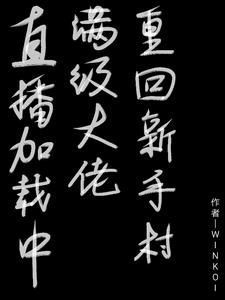 重回新手村
满级大佬
直播加载中
作者—WINKOI